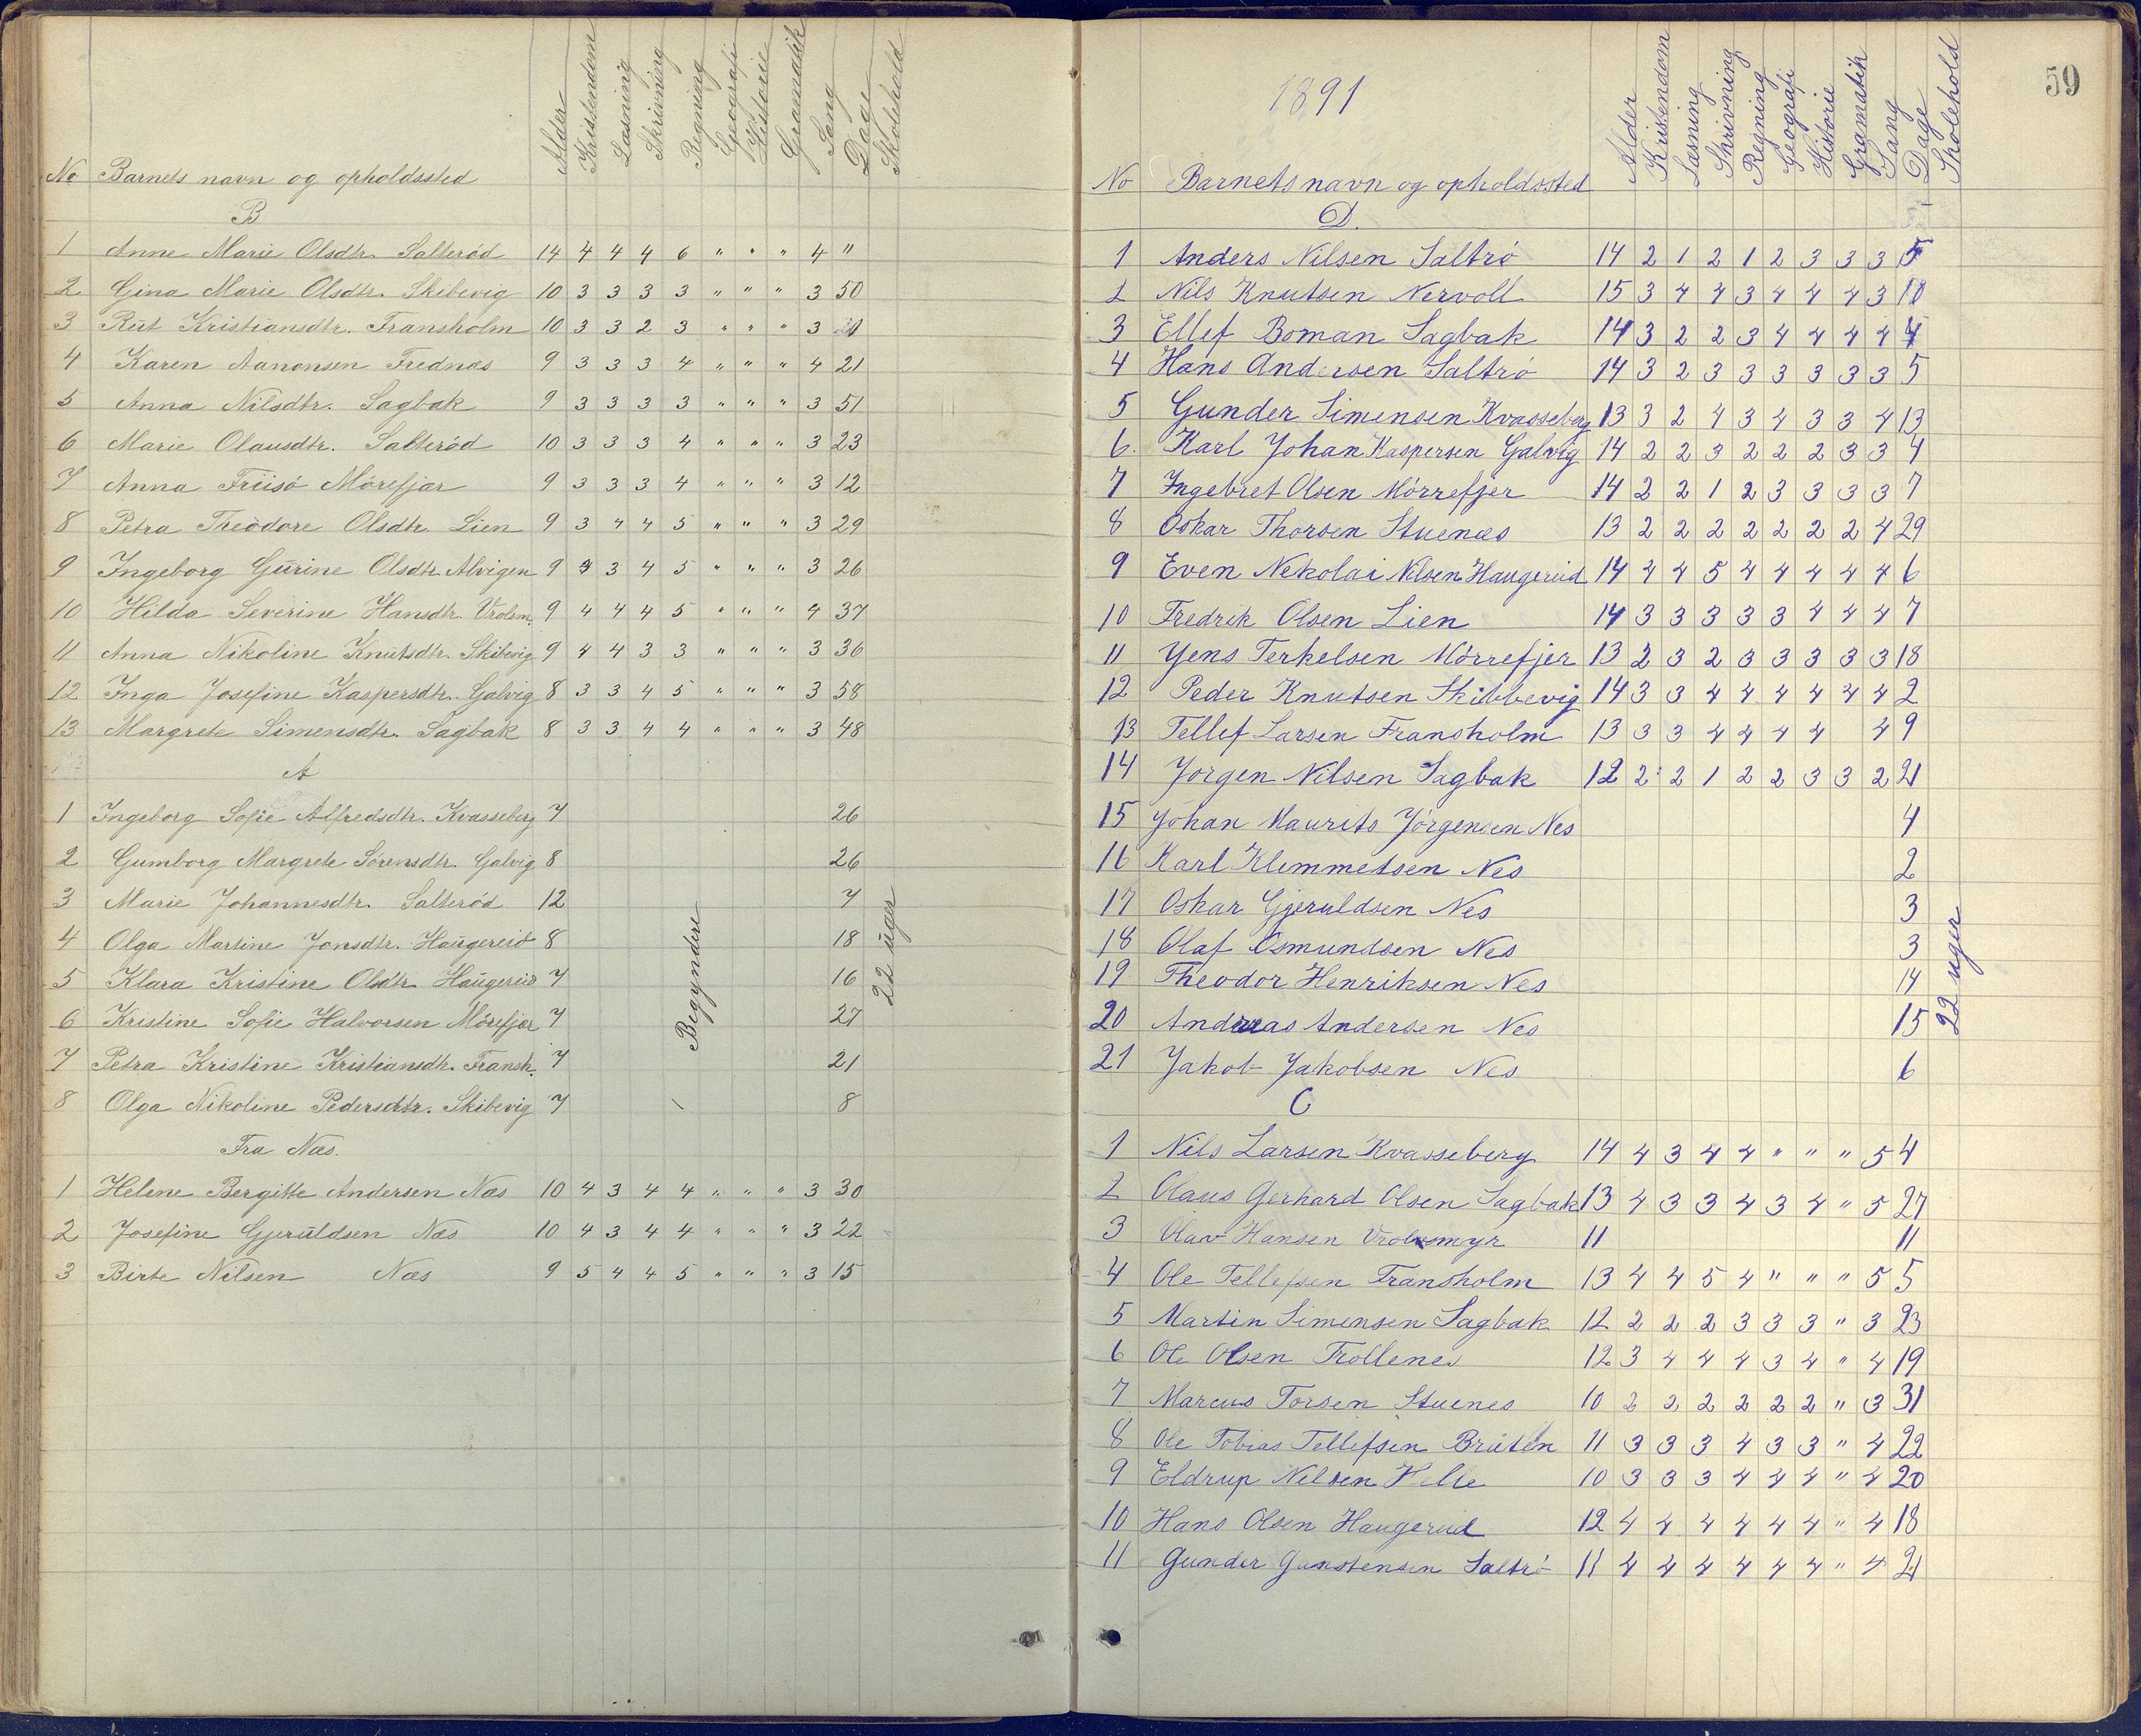 No Barnets navn og opholdssted Alder Kristendom Læsning Skrivning Regning Geografi Historie Gramatik Sang Dage Skolehold
B
1 Anne Marie Olsdtr. Salterød 14 4 4 4 6 " " " 4 "
2 Gina Marie Olsdtr. Skibevig 10 3 3 3 3 " " " 3 50
3 Rut Kristiansdtr. Fransholm 10 3 3 2 3 " " " 3
4 Karen Aanonsen Frednæs 9 3 3 3 4 " " " 4 21
5 Anna Nilsdtr. Sagbak 9 3 3 3 3 " " " 3 51
6 Marie Olausdtr. Salterød 10 3 3 3 4 " " " 3 23
7 Anna Friisø Mørefjær 9 3 3 3 4 " " " 3 12
8 Petra Theodore Olsdtr. Lien 9 3 4 4 5 " " " 3 29
9 Ingeborg Gurine Olsdtr. Alvigen 9 3 4 5 " " " 3 26
10 Hilda Severine Hansdtr. Vrolsm. 9 4 4 4 5 " " " 4 37
11 Anna Nikoline Knutsdtr. Skibevig 9 4 4 3 3 " " " 3 36
12 Inga Josefine Kaspersdtr. Galvig 8 3 3 4 5 " " " 3 58
13 Margrete Simensdtr. Sagbak 8 3 3 4 4 " " " 3 48
A
1 Ingeborg Sofie Alfredsdtr. Kvasseberg 7 26
2 Gumborg Margrete Sørensdtr. Galvig 8 26
3 Marie Johannesdtr. Salterød 12 7
4 Olga Martine Jonsdtr. Haugereid 8 18
5 Klara Kristine Olsdtr. Haugereid 7 16
6 Kristine Sofie Halvorsen Mørefjær 7 27
7 Petra Kristine Kristiansdtr. Fransh. 7 21
8 Olga Nikoline Pedersdtr. Skibevig 7 8
Begyndere
22 uger
Fra Næs.
1 Helene Bergitte Andersen Næs 10 4 3 4 4 " " " 3 30
2 Josefine Gjeruldsen Næs 10 4 3 4 4 " " " 3 22
3 Birte Nilsen Næs 9 5 4 4 5 " " " 3 15
59
1891
No Barnets navn og opholdssted Alder Kristendom Læsning Skrivning Regning Geografi Historie Gramatik Sang Dage Skolehold
D.
1 Anders Nilsen Saltrø 14 2 1 2 1 2 3 3 3 5
2 Nils Knutsen Nervoll 15 3 4 4 3 4 4 4 3 10
3 Ellef Boman Sagbak 14 3 2 2 3 4 4 4 4 4
4 Hans Andersen Saltrø 14 3 2 3 3 3 3 3 3 5
5 Gunder Simensen Kvasseberg 13 3 2 4 3 4 3 3 4 13
6. Karl Johan Kaspersen Galvig 14 2 2 3 2 2 2 3 3 4
7 Ingebret Olsen Mörrefjer 14 2 2 1 2 3 3 3 3 7
8 Oskar Thorsen Stuenæs 13 2 2 2 2 2 2 2 4 29
9 Even Nekolai Nilsen Haugereid 14 4 4 5 4 4 4 4 4 6
10 Fredrik Olsen Lien 14 3 3 3 3 3 4 4 4 7
11 Yens Terkelsen Mörrefjer 13 2 3 2 3 3 3 3 3 18
12 Peder Knutsen Skibbevig 14 3 3 4 4 4 4 4 4 2
13 Tellef Larsen Fransholm 13 3 3 4 4 4 4 4 9
14 Jorgen Nilsen Sagbak 12 2 2 1 2 2 3 3 2 21
15 Johan Maurits Jörgensen Nes 4
16 Karl Klemmetsen Nes 2
17 Oskar Gjeruldsen Nes 3
18 Olaf Osmundsen Nes 3
19 Theodor Henriksen Nes 14
20 Andreas Andersen Nes 15
21 Jakob Jakobsen Nes 6
22 uger
C
1 Nils Larsen Kvasseberg 14 4 3 4 4 " " " 5 4
2 Olaus Gerhard Olsen Sagbak 13 4 3 3 4 3 4 " 5 27
3 Olav Hansen Vrolsmyr 11 11
4 Ole Tellefsen Fransholm 13 4 4 5 4 " " " 5 5
5 Martin Simensen Sagbak 12 2 2 2 3 3 3 " 3 23
6 Ole Olsen Trollenes 12 3 4 4 4 3 4 " 4 19
7 Marcus Torsen Stuenes 10 2 2 2 2 2 2 " 3 31
8 Ole Tobias Tellefsen Bråten 11 3 3 3 4 3 3 " 4 22
9 Eldrup Nilsen Helle 10 3 3 3 4 4 4 " 4 20
10 Hans Olsen Haugerud 12 4 4 4 4 4 4 " 4 18
11 Gunder Gunstensen Saltrö 11 4 4 4 4 4 4 " 4 21